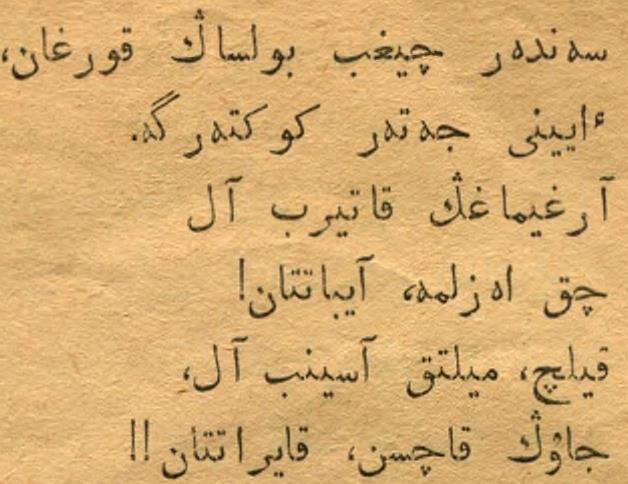 سەندەر چيغىب بولساڭ قورغان،
ٴايينى جەتەر كوكتەرگە.
آرغيماغڭ قاتيرب آل
چق اەزلمە، آيباتتان!
قيلچ، ميلتق آسينب آل،
جاوڭ قاچسن، قايراتتان!!